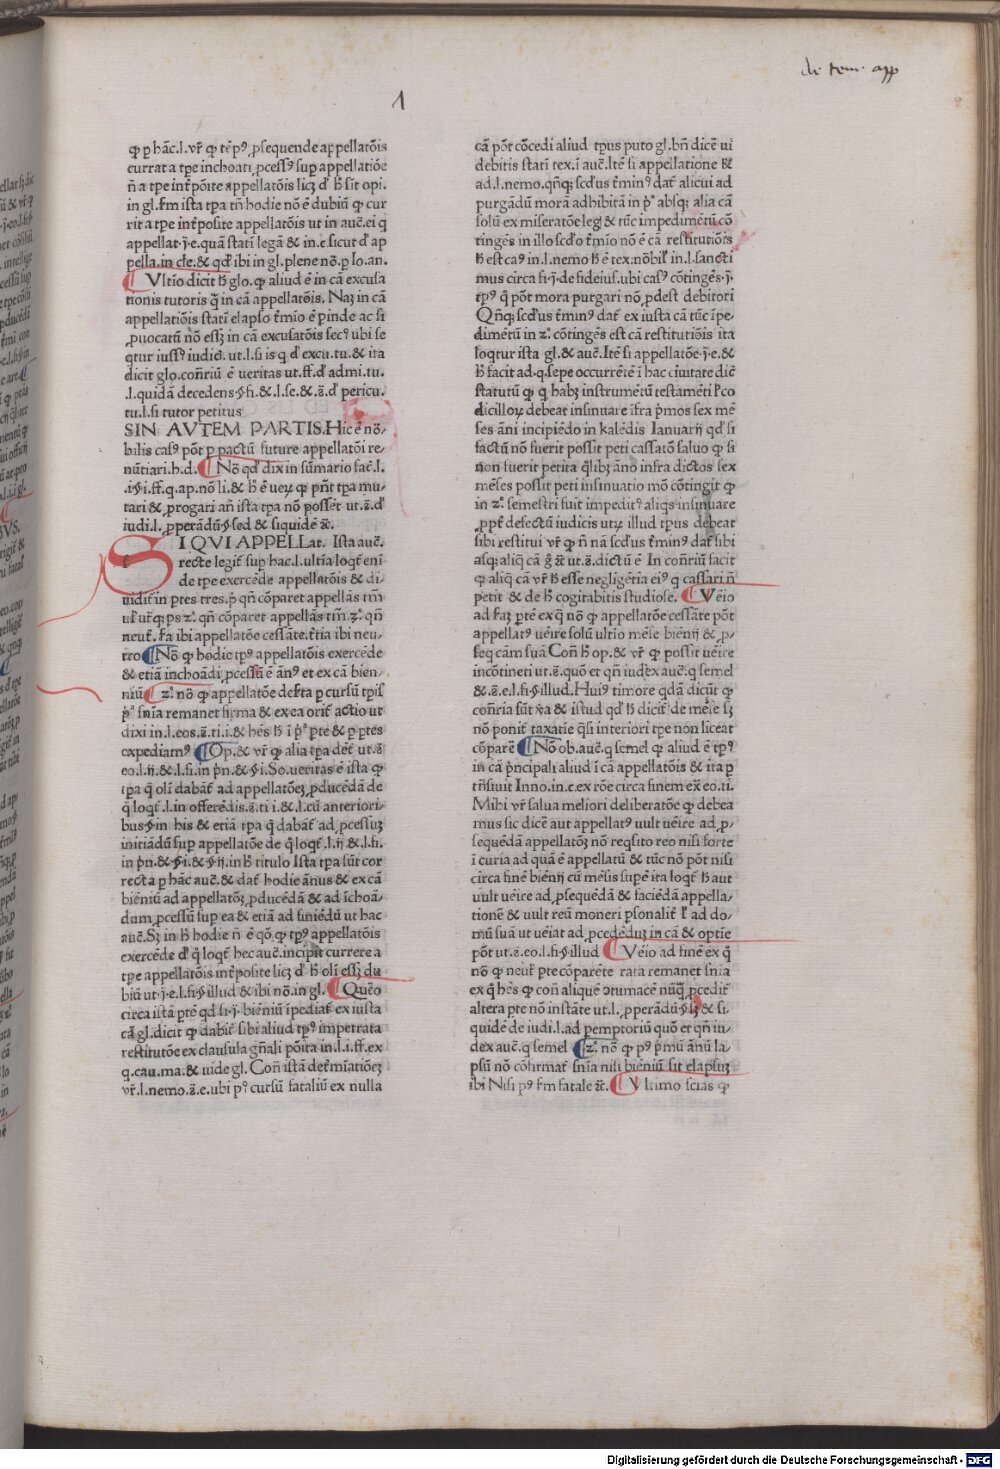 de tem. app
1
ꝙ ꝑ hãc.l.vr̃ ꝙ tẽpꝰ ꝓsequende appellatõis
currat a tꝑe inchoati ꝓcessꝰ suꝑ appellatiõe
ñ a tꝑe int̃põite appellatõis licꝫ d̃ h̃ sit opi.
in gl.fm ista tꝑa tñ hodie nõ ẽ dubiũ ꝙ cur
rit a tꝑe int̃posite appellatõis ut in auẽ.ei q
appellat.j.e.quã stati legã & in.c sicut d̃ ap
pella.in cle.& qd̃ ibi in gl.plene nõ.ꝑ Io.an.
Vltio dicit h̃ glo.ꝙ aliud ẽ in cã excusa
tionis tutoris q̃ in cã appellatõis. Naꝫ in cã
appellatiõis stati elapso t̃mio ẽ ꝑinde ac si
ꝓuocatũ nõ essꝫ in cã excusatõis secꝰ ubi se
qtur iussꝰ iudicĩ.ut.l.si is q d̃ excu.tu.& ita
dicit glo.cõñriũ ẽ ueritas ut.ff.d̃ admi.tu.
.l.quidã decedens.§.fi.& .l.se.& .ã.d̃ pericu.
tu.l.si tutor petitus
SIN AVTEM PARTIS.Hic ẽ nõ/
bilis casꝰ põt ꝑ pactũ future appellatõi re/
nũtiari.h.d. Nõ qd̃ dix in sũmario fac̃.l.
.i.§.i.ff.q.ap.nõ li.& h̃ ẽ ueꝝ ꝙ pñt tꝑa mu/
tari & ꝓrogari añ ista tꝑa nõ possẽt ut.ã.d̃
iudi.l.ꝓperãdũ.§.sed & siquidẽ &̃.
SI QVI APPELLAt. Ista auẽ.
recte legit̃ suꝑ hac.l.ultia loqt̃ eni/
de tꝑe exercẽde appellatõis & di/
uidit̃ in ꝑtes tres.p̃ qñ cõparet appellãs tm̃
ul̃ ut̃qꝫ ꝑs zͦ.qñ cõparet appellãs tm̃.zͦ.qñ
neut̃.Fa ibi appellatõe cessãte.t̃tia ibi neu/
tro Nõ ꝙ hodie tꝑꝰ appellatõis exercẽde
& etiã inchoãdi ꝓcessũ ẽ ãnꝰ et ex cã bien/
niũ zͦ.nõ ꝙ appellatõe deẽrta ꝑ cursũ tꝑis
p̃ꝰ sñia remanet firma & ex ea orit̃ actio ut
dixi in.l.eos.ã.ti.i.& hẽs h̃ i p̃ꝰ ꝑte & ꝑ ꝑtes
expediamꝰ Op.& vr̃ ꝙ alia tꝑa det̃ ut.ã
eo.l.ij.& .l.fi.in p̃n.& §.i.So.ueritas ẽ ista ꝙ
tꝑa q̃ oli dabãt̃ ad appellatõeꝫ ꝓducẽdã de
q̃ loqt̃.l.in offerẽdis.ã.ti i.& .l.cũ anteriori/
bus.§.in his & etiã tꝑa q̃ dabãt̃ ad ꝓcessuꝫ
initiãdũ suꝑ appellatõe de q̃ loqt̃.l.ij.& .l.fi.
in p̃n.& §.i.& §.ij.in h̃ titulo Ista tꝑa sũt cor
recta ꝑ hãc auẽ.& dat̃ hodie ãnus & ex cã
biẽniũ ad appellatõꝫ ꝓducẽdã & ad ichoã/
dum ꝓcessũ suꝑ ea & etiã ad finiẽdũ ut hac
auẽ.Sꝫ in h̃ hodie ñ ẽ qõ.ꝙ tꝑꝰ appellatõis
exercẽde d̃ q̃ loqt̃ hec auẽ.incipit currere a
tꝑe appellatõis int̃posite licꝫ d̃ h̃ oli essꝫ du
biũ ut.j.e.l.fi.§.illud & ibi nõ.in gl. Queo
circa istã ꝑtẽ qd̃ si.j.biẽniũ ipediat̃ ex iusta
cã gl.dicit ꝙ dabit̃ sibi aliud tꝑꝰ impetrata
restitutõe ex clausula gñali põita in.l.i.ff.ex
q.cau.ma.& uide gl. Coñ istã det̃miatiõeꝫ
vr̃.l.nemo.ã.e.ubi pꝰ cursũ fataliũ ex nulla
cã põt cõcedi aliud tꝑus puto gl.bñ dicẽ ui
debitis stati tex.i auẽ.Itẽ si appellatione R̃
ad.l.nemo.qñqꝫ scd̃us t̃minꝰ dat̃ alicui ad
purgãdũ morã adhibitã in p̃ꝰ absqꝫ alia cã
solũ ex miseratõe legꝭ & tũc impedimẽtũ cõ
tingẽs in illo scd̃o t̃mio nõ ẽ cã restitutiõis
h̃ est caꝰ in.l.nemo h̃ ẽ tex.nõbiĩ in.l.sancti
mus circa fi.j.de fideiuf.ubi casꝰ cõtingẽs.j.
tꝑꝰ q̃ põt mora purgari nõ ꝓdest debitori
Qñqꝫ scd̃us t̃minꝰ dat̃ ex iusta cã tũc ipe/
dimẽtũ in zͦ.cõtingẽs est cã restitutiõis ita
loqtur ista gl.& auẽ.Itẽ si appellatõe.j.e.&
h̃ facit ad.q.sepe occurrẽtẽ i hac ciuitate dic̃
statutũ ꝙ q habꝫ instrumẽtũ testamẽti ł co
dicilloꝝ debeat insinuare ifra p̃mos sex mẽ
ses ãni incipiẽdo in kalẽdis Ianuarij qd̃ si
factũ nõ fuerit possit peti cassatõ saluo ꝙ si
non fuerit petita q̃libꝫ ãno infra dictos sex
mẽses possit peti insinuatio mõ cõtingit ꝙ
in zͦ.semestri fuit impeditꝰ aliqs insinuare
ꝓpt̃ defectũ iudicis utꝝ illud tꝑus debeat
sibi restitui vr̃ ꝙ ñ nã scd̃us t̃minꝰ dat̃ sibi
asqꝫ aliq̃ cã g̃ &̃ ut.ã.dictũ ẽ In cõñriũ facit
ꝙ aliq̃ cã vr̃ h̃ esse negligẽtia eiꝰ q cassari ñ
petit & de h̃ cogitabitis studiose. Veio
ad saꝫ ꝑtẽ ex q̃ nõ ꝙ appellatõe cessãte põt
appellatꝰ ueire solũ ultio mẽse biẽnij & ꝓ/
seq cãm suã Coñ h̃ op.& vr̃ ꝙ possit ueire
incõtineti ut.ã.quõ et qñ iudex auẽ.q semel
& .ã.e.l.fi.§.illud.Huiꝰ timore qdã dicũt ꝙ
cõñria sũt ṽa & istud qd̃ h̃ dicit̃ de mẽse sꝫ
nõ ponit̃ taxatie q̃si interiori tꝑe non liceat
cõparẽ Nõ ob.auẽ.q semel ꝙ aliud ẽ tꝑꝰ
in cã p̃ncipali aliud i cã appellatõis & ita ꝑ
tñsiuit Inno.in.c.ex rõe circa finem ex̃ eo.ti.
Mihi vr̃ salua meliori deliberatõe ꝙ debea
mus sic dicẽ aut appellatꝰ uult ueire ad ꝓ/
sequẽdã appellatõꝫ nõ reqsito reo nisi forte
i curia ad quã ẽ appellatũ & tũc nõ põt nisi
circa finẽ biẽnij cũ mẽsis supẽ ita loqt̃ h̃ aut
uult ueire ad ꝓsequẽdã & faciẽdã appella/
tionẽ & uult reũ moneri ꝑsonalit̃ ł ad do/
mũ suã ut ueiat ad ꝓcedẽduꝫ in cã & optie
põt ut.ã.eo.l.fi.§.illud Veio ad finẽ ex q̃
nõ ꝙ neut̃ ꝑte cõparẽte rata remanet sñia
ex q̃ hẽs ꝙ coñ aliquẽ ɔtumacẽ nũq̃ ꝓcedit̃
altera ꝑte nõ instãte ut.l.ꝓperãdũ.§.sꝫ & si/
quidẽ de iudi.l.ad pemptoriũ quõ et qñ iu/
dex auẽ.q semel zͦ.nõ ꝙ pꝰ p̃mũ ãnũ la/
psũ nõ cõfirmat̃ sñia nisi biẽniũ sit elapsuꝫ
ibi Nisi pꝰ fm fatale &̃. Vltimo scias ꝙ
Digitalisierung gefördert durch die Deutsche Forschungsgemeinschaft - DFG